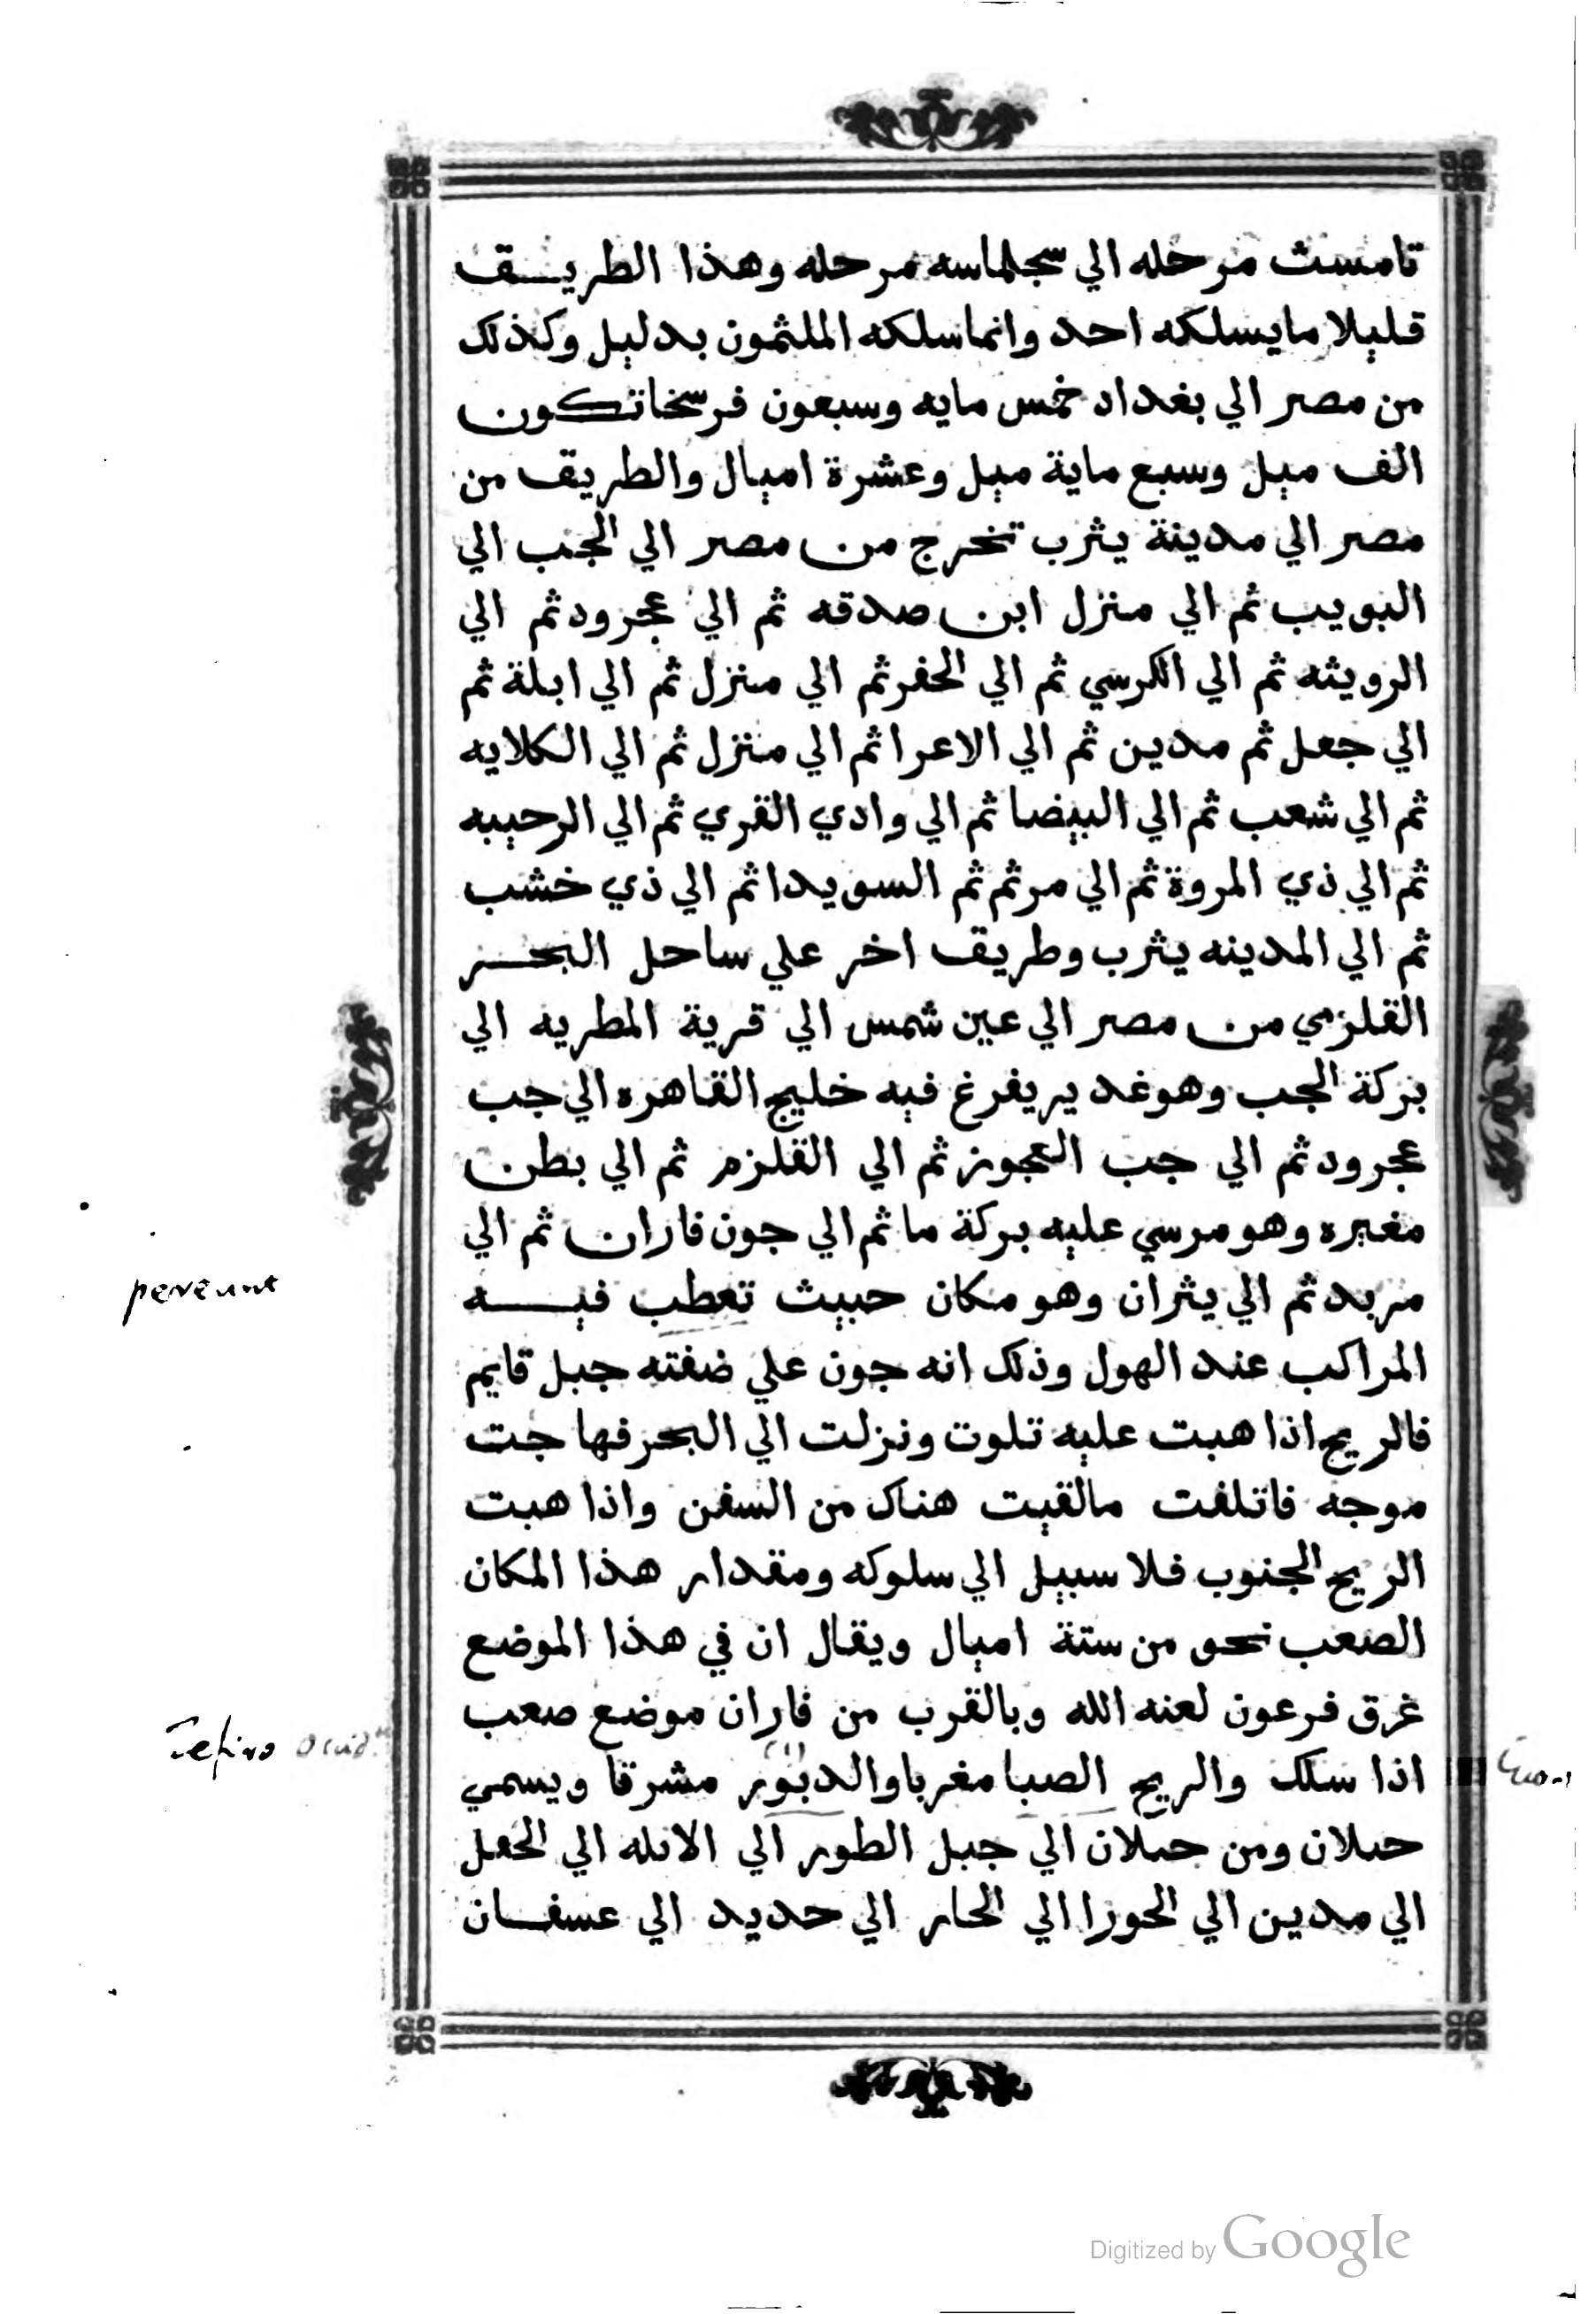 تامست مرحله الي سجلماسه مرحله وهذا الطريق
قليلا مايسلكه احد وانماسلكه الملثمون بدليل وكذلك
من مصر الي بغداد خمس مايه وسبعون فرسخاتكون
الف ميل وسبع ماية ميل وعشرة اميال والطريق من
مصر الي مدينة يثرب تخرج من مصر الي الجب الي
البويب ثم الي منزل ابن صدقه ثم الي عجرود ثم الي
الرويثه ثم الي الكرسي ثم الي الحفر ثم الي منزل ثم الي ايلة ثم
الي جعل ثم مدين ثم الي الاعرا ثم الي منزل ثم الي الكلايه
ثم الي شعب ثم الي البيضا ثم الي وادي القري ثم الي الرحيبه
ثم الي ذي المروة ثم الي مر ثم ثم السويدا ثم الي ذي خشب
ثم الي المدينه يثرب وطريق اخر علي ساحل البحر
القلزمي من مصر الي عين شمس الي قرية المطريه الي
بركة الجب وهو غدير يفرغ فيه خليج القاهره الي جب
عجرود ثم الي جب العجوز ثم الي القلزم ثم الي بطن
مغيره وهو مرسي عليه بركة ما ثم الي جون فاران ثم الي
مزبد ثم الي يثران وهو مكان حبيث تعطب فيه
pereunt
المراكب عند الهول وذلك انه جون علي ضفته جبل قايم
فالريح اذا هبت عليه تلوت ونزلت الي البحر فهاجت
موجه فاتلفت مالقيت هناك من السفن واذا هبت
الريح الجنوب فلا سبيل الي سلوكه ومقدار هذا المكان
الصعب نحو من ستة اميال ويقال ان في هذا الموضع
غرق فرعون لعنه الله وبالقرب من فاران موضع صعب
اذا سلك والريح الصبا مغربا والدبور مشرقا ويسمي
Zefiro
حىلان ومن حىلان الي جبل الطور الي الاىله الي الحقل
الي مدين الي الحورا الي الحار الي حديد الي عسفان
Digitized by Google